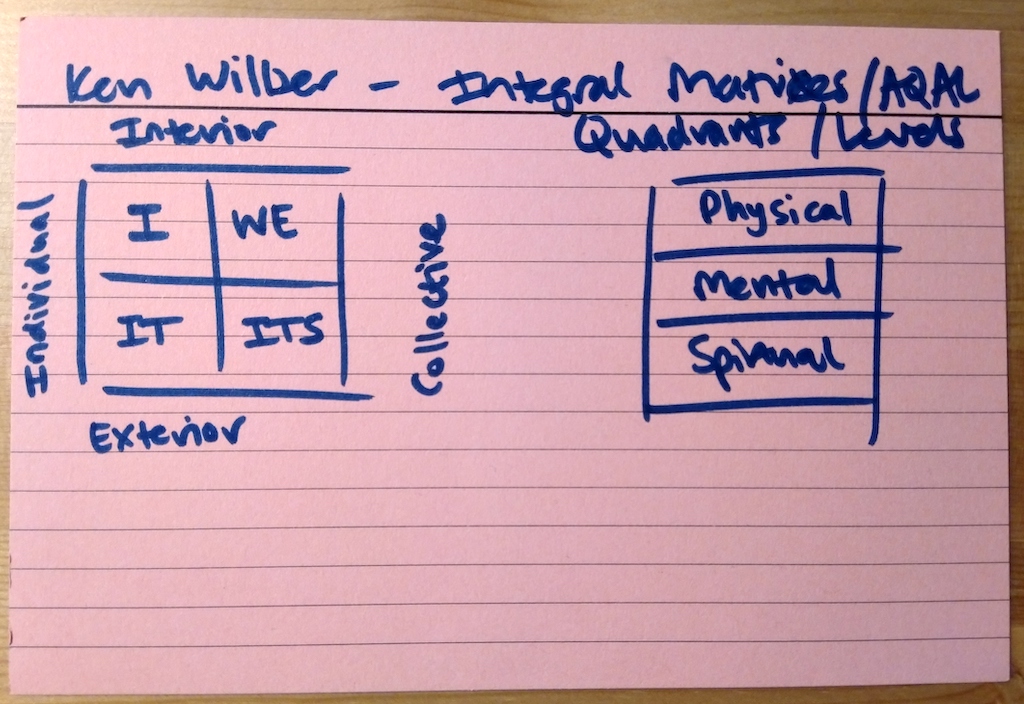 Ken Wilber - Integral Matrixes/AQAL
Quadrants/Levels
Interior
Individual
I WE
IT ITS
Collective
Exterior
Physical
Mental
Spiritual